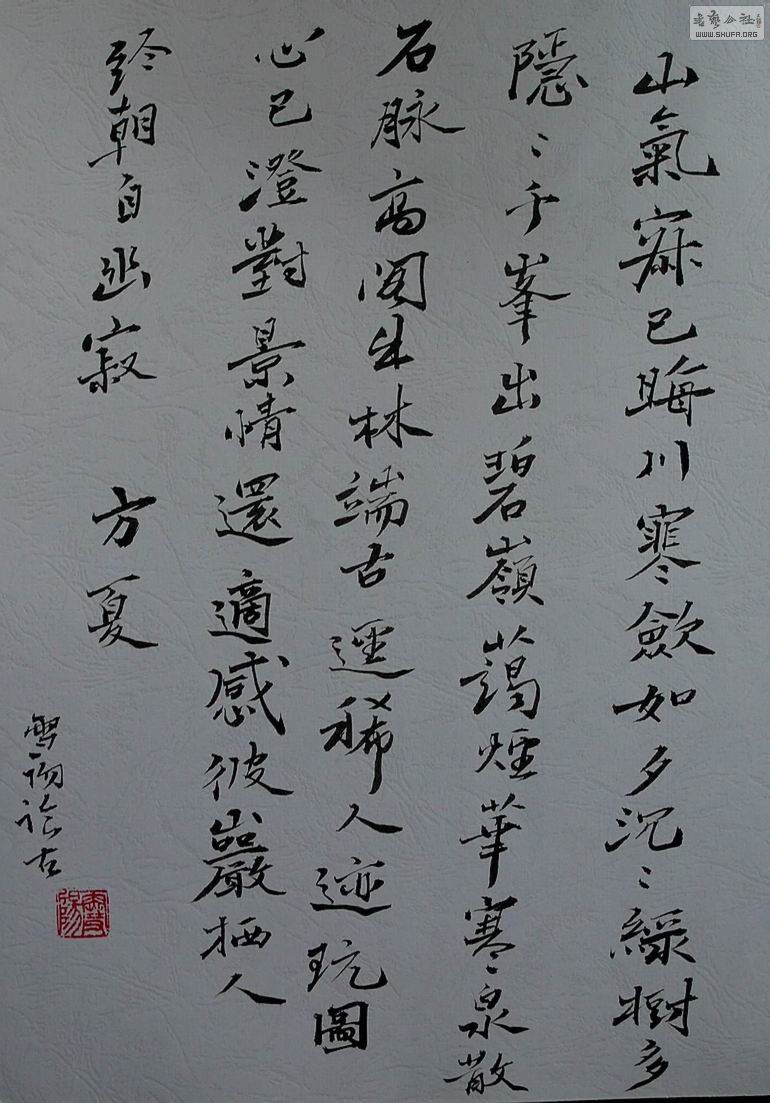 山氣寂已晦川寥歛如夕沉〻綠樹多
隱〻千峯出碧嶺藹煙華寒〻泉散
石脉高阁生林端古逕稀人迹玩圖
心已澄對景情還適感彼巖栖人
終朝自幽寂 方夏
雪陽
書藝公社
WWW.SHUFA.ORG